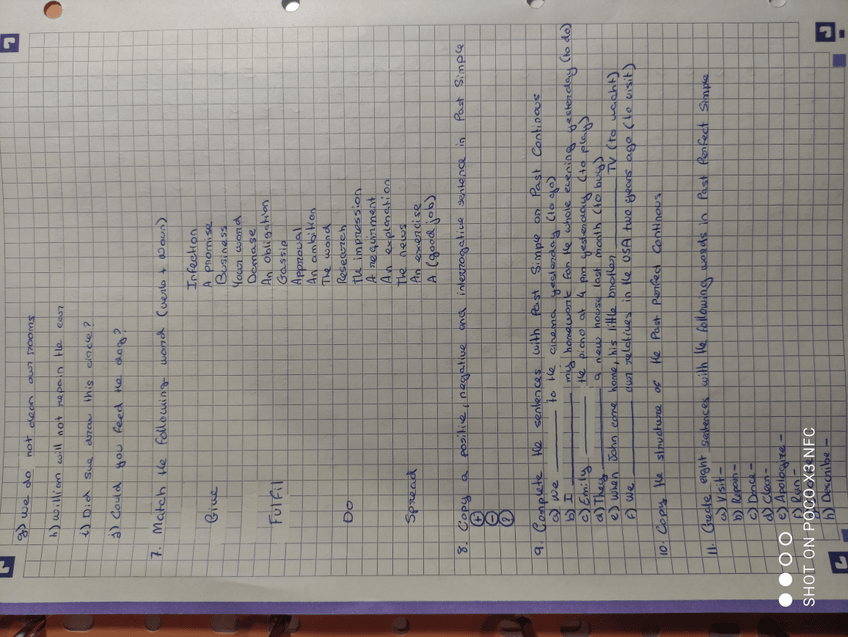 g) We do not clean our rooms
h) William will not repair the car
i) Did sue draw this circle?
j) Could you feed the dog?
7. Match the following word (verb + noun)
Give
Fulfil
Do
Spread
Infection
A promise
Business
Your word
Damage
An obligation
Gossip
Approval
An ambition
The word
Research
The impression
A requirment
An explanation
The news
An exercise
A (good job)
8. Copy a positive, negative and interrogative sentence in Past Simple
+
-
?
9. Complete the sentences with Past Simple or Past Continous
a) We ____ to the cinema yesterday (to go)
b) I ____ my homework for the whole evening yesterday (to do)
c) Emily ____ the piano at 4 pm yesterday (to play)
d) They ____ a new house last month (to buy)
e) When John came home, his little brother ____ TV (to watch)
f) We ____ our relatives in the USA two years ago (to visit)
10. Copy the structure of the Past Perfect Continous
11. Create eight sentences with the following words in Past Perfect Simple
a) Visit-
b) Repair-
c) Dance-
d) Clean-
e) Apologize-
f) Run-
h) Describe-
SHOT ON POCO X3 NFC